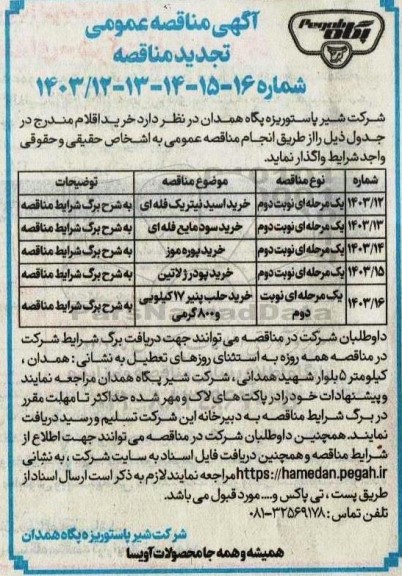 Pegah
پگاه
آگهی مناقصه عمومی
تجدید مناقصه
شماره ۱۶-۱۵-۱۴-۱۳-۱۴۰۳/۱۲
شرکت شیر پاستوریزه پگاه همدان در نظر دارد خرید اقلام مندرج در
جدول ذیل را از طریق انجام مناقصه عمومی به اشخاص حقیقی و حقوقی
واجد شرایط واگذار نماید.
شماره نوع مناقصه موضوع مناقصه توضیحات
۱۴۰۳/۱۲ یک مرحله ای نوبت دوم خرید اسید نیتریک فله ای به شرح برگ شرایط مناقصه
۱۴۰۳/۱۳ یک مرحله ای نوبت دوم خرید سود مایع فله ای به شرح برگ شرایط مناقصه
۱۴۰۳/۱۴ یک مرحله ای نوبت دوم خرید پوره موز به شرح برگ شرایط مناقصه
۱۴۰۳/۱۵ یک مرحله ای نوبت دوم خرید پودر ژلاتین به شرح برگ شرایط مناقصه
۱۴۰۳/۱۶ یک مرحله ای نوبت دوم خرید حلب پنیر ۱۷ کیلویی و ۸۰۰ گرمی به شرح برگ شرایط مناقصه
داوطلبان شرکت در مناقصه می توانند جهت دریافت برگ شرایط شرکت
در مناقصه همه روزه به استثنای روزهای تعطیل به نشانی : همدان ،
کیلومتر ۵ بلوار شهید همدانی ، شرکت شیر پگاه همدان مراجعه نمایند
و پیشنهادات خود را در پاکت های لاک و مهر شده حداکثر تا مهلت مقرر
در برگ شرایط مناقصه به دبیرخانه این شرکت تسلیم و رسید دریافت
نمایند. همچنین داوطلبان شرکت در مناقصه می توانند جهت اطلاع از
شرایط مناقصه و همچنین دریافت فایل اسناد به سایت شرکت ، به نشانی
https://hamedan.pegah.ir مراجعه نمایند لازم به ذکر است ارسال اسناد از
طریق پست ، تی پاکس و.... مورد قبول می باشد.
تلفن تماس : ۳۲۵۶۹۱۷۸-۰۸۱
شرکت شیر پاستوریزه پگاه همدان
همیشه و همه جا محصولات آویسا